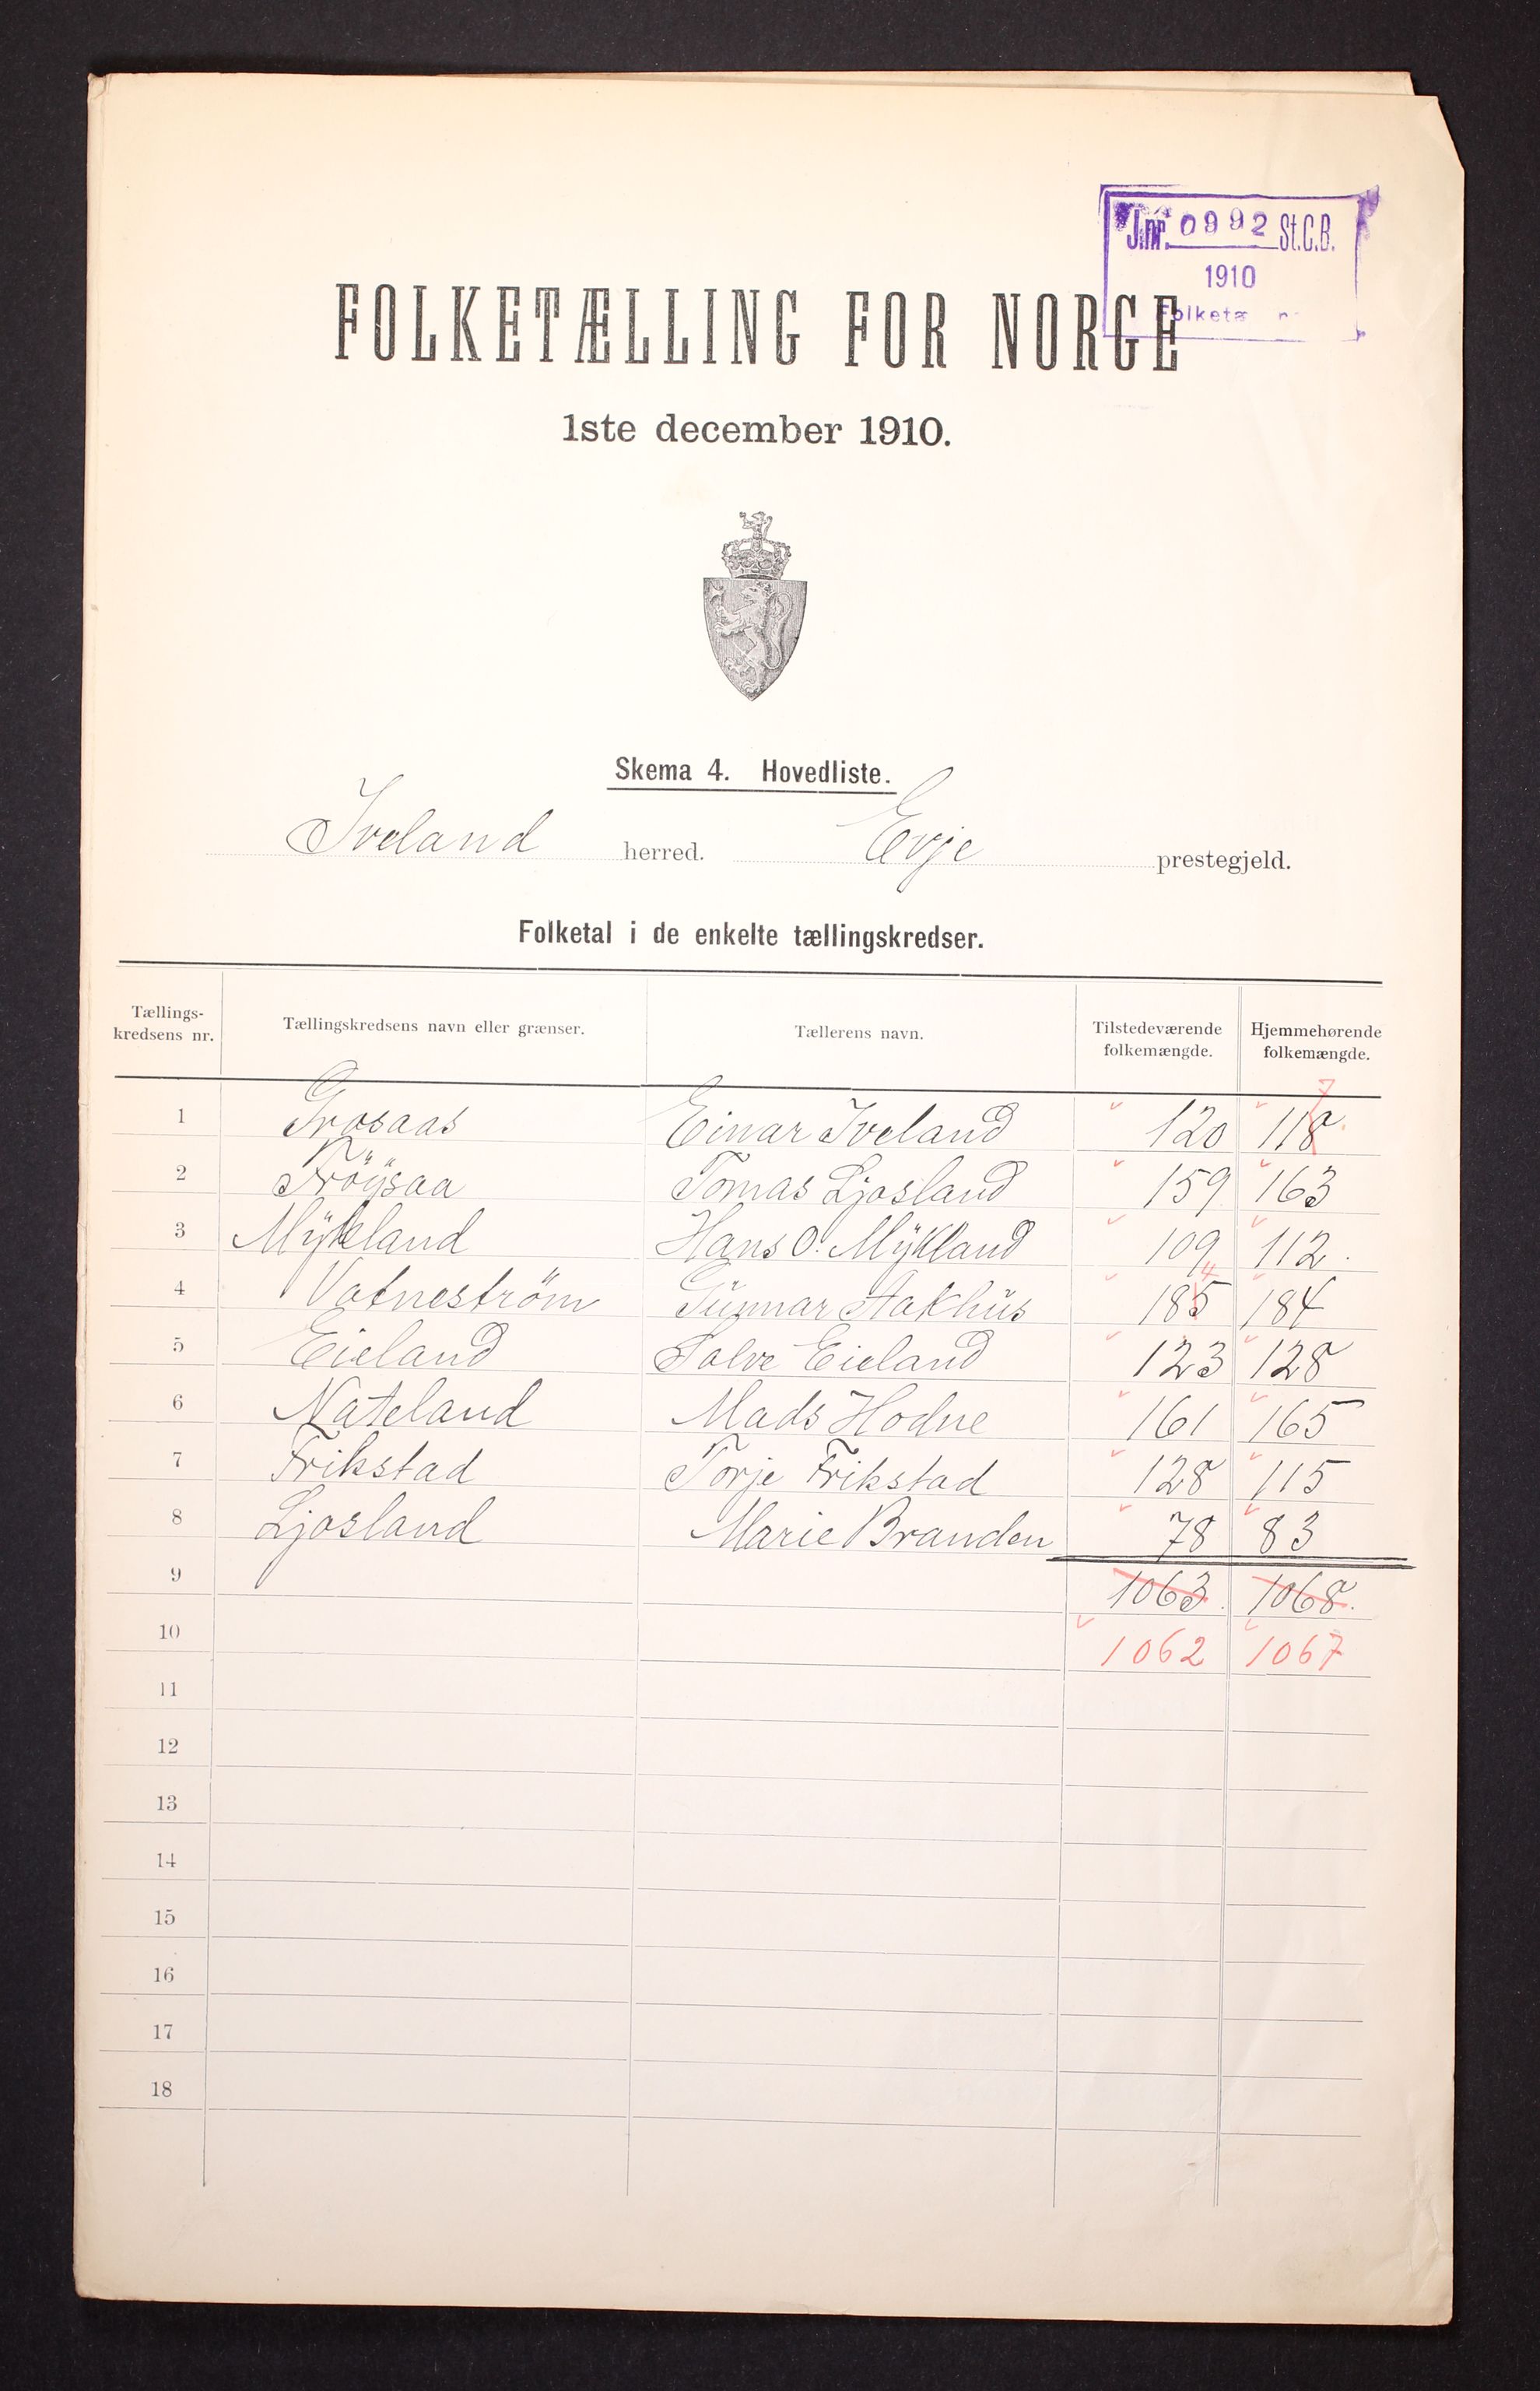 J.nr. 0992 St.C.B.
1910
FOLKETÆLLING FOR NORGE
1ste december 1910.
Skema 4. Hovedliste.
Iveland herred. Evje prestegjeld.
Folketal i de enkelte tællingskredser.
Tællings-kredsens nr. Tællingskredsens navn eller grænser. Tællerens navn. Tilstedeværende folkemængde. Hjemmehørende folkemængde.
1 Grosaas Einar Iveland 120 118 7
2 Fröysaa Tomas Ljosland 159 163
3 Mykland Hans O. Mykland 109 112
4 Vatneström Gunnar Aakhus 185 4 184
5 Eieland Salve Eieland 123 128
6 Nateland Mads Hodne 161 165
7 Frikstad Torje Frikstad 128 115
8 Ljosland Marie Branden 78 83
9 1063 1068
10 1062 1067
11
12
13
14
15
16
17
18